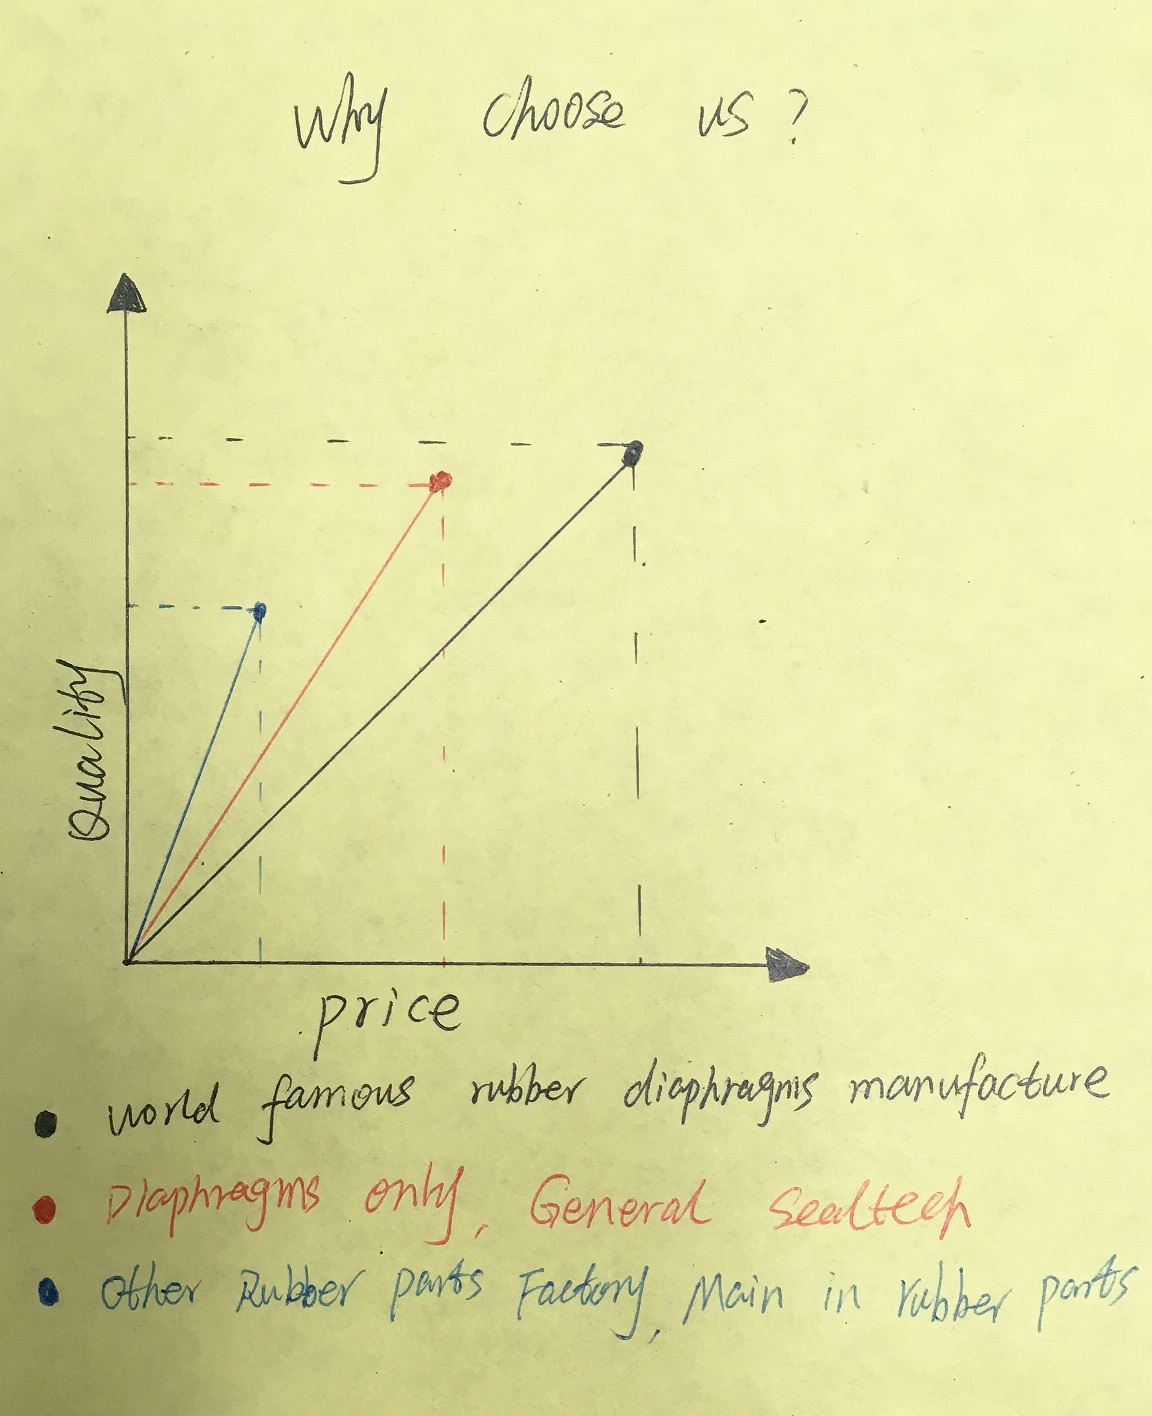 Why choose us?
Quality
price
world famous rubber diaphragms manufacture
Diaphragms only, General Sealtech
Other Rubber parts Factory, Main in rubber parts